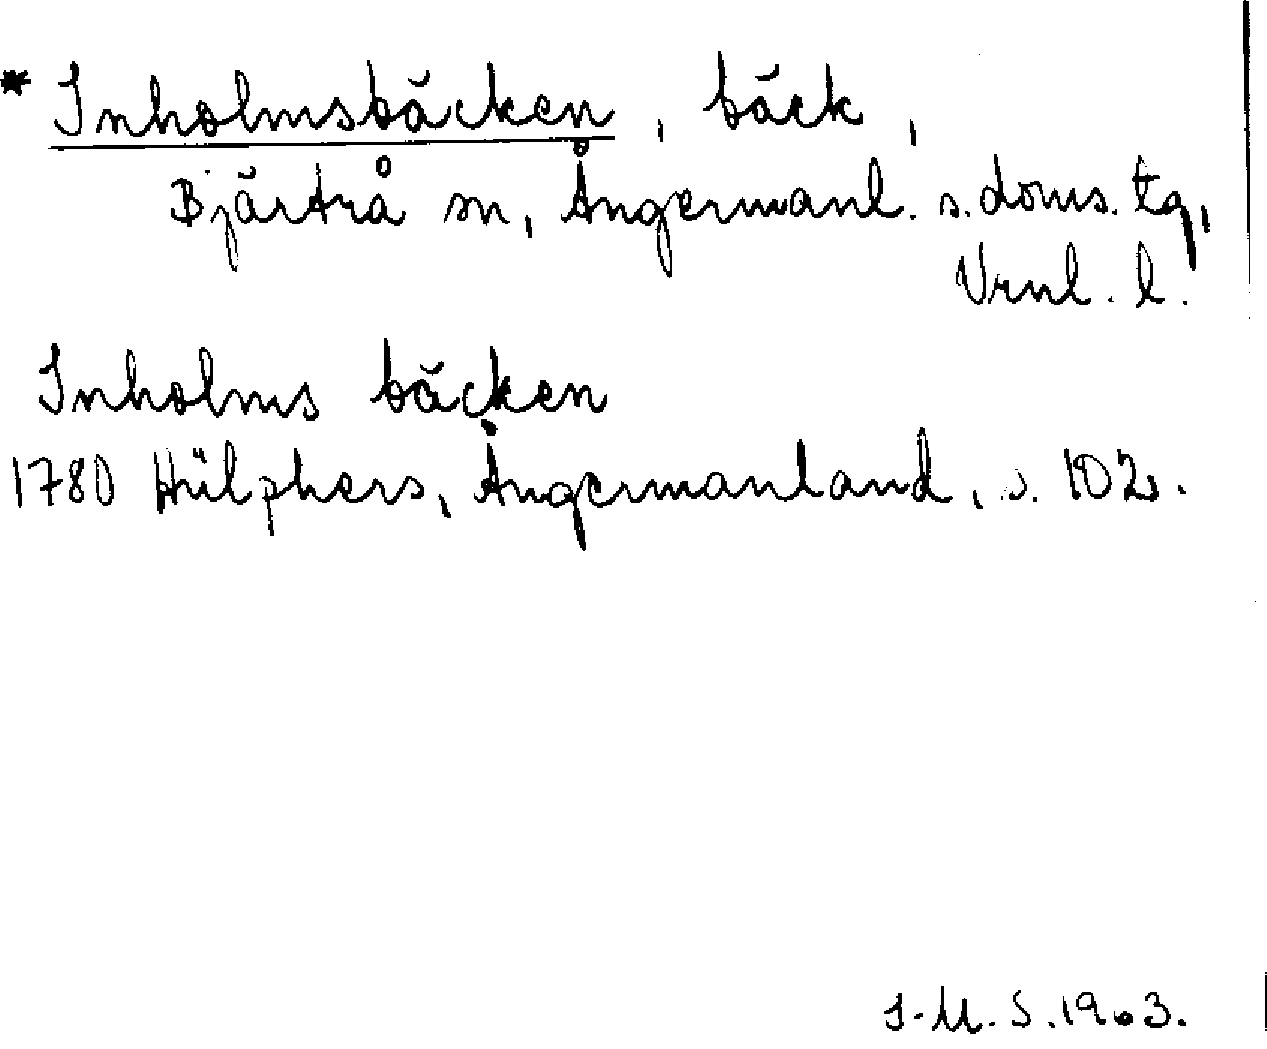 * Inholmsbäcken, bäck,
Bjärtrå sn, Ångermanl. s. doms. tg,
Vrnl. l.
Inholms bäcken
1780 Hülphers, Ångermanland, s. 102.
I-M. S. 1963.